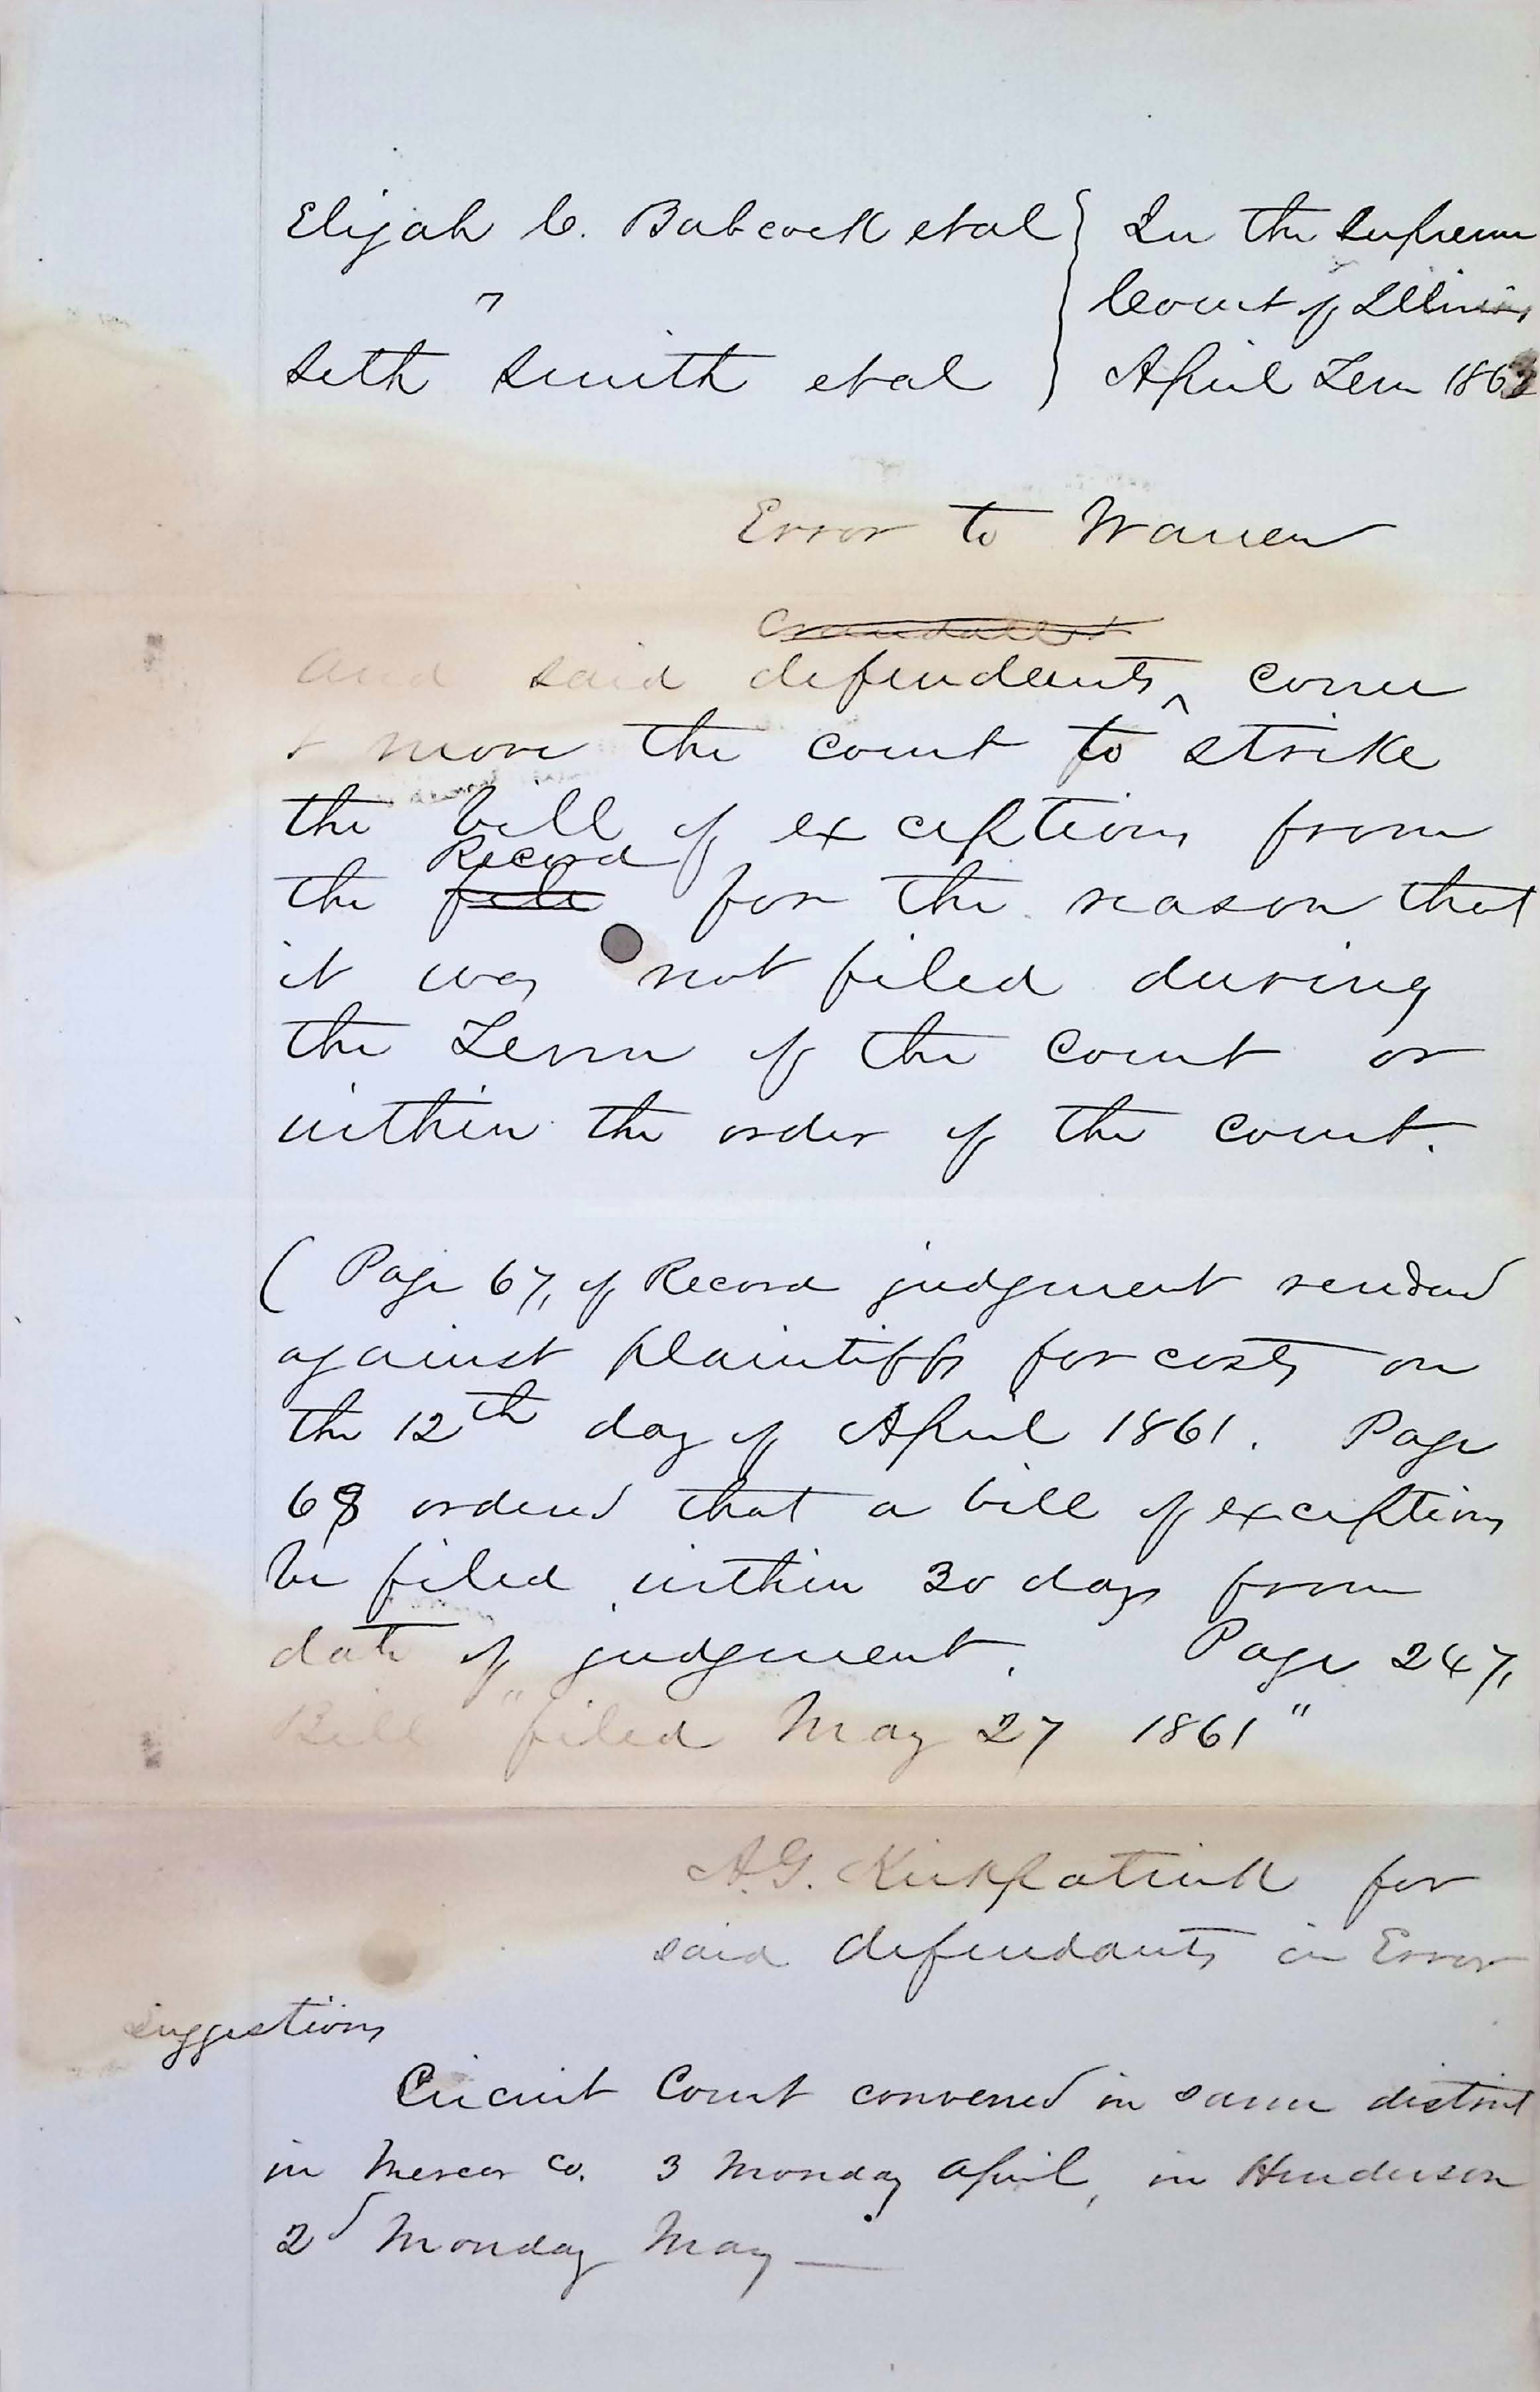 Elijah C. Babcock et al } In the Supreme
" } Court of Illinois
Seth Smith et al } April Term 1863
Error to Warren
And said defendants come
& move the court to strike
the bill of exceptions from
Record
the file for the reason that
it was not filed during
the Term of the court or
within the order of the court.
( Page 67, of Record judgment rendered
against plaintiffs for costs on
the 12th day of April 1861. Page
68 ordered that a bill of exceptions
be filed within 30 days from
date of judgment. Page 247,
Bill "filed May 27 1861"
A.G. Kirkpatrick for
said defendants in Error
Suggestions
Circuit Court convened in same district
in Mercer Co. 3 Monday April, in Henderson
2d Monday May —